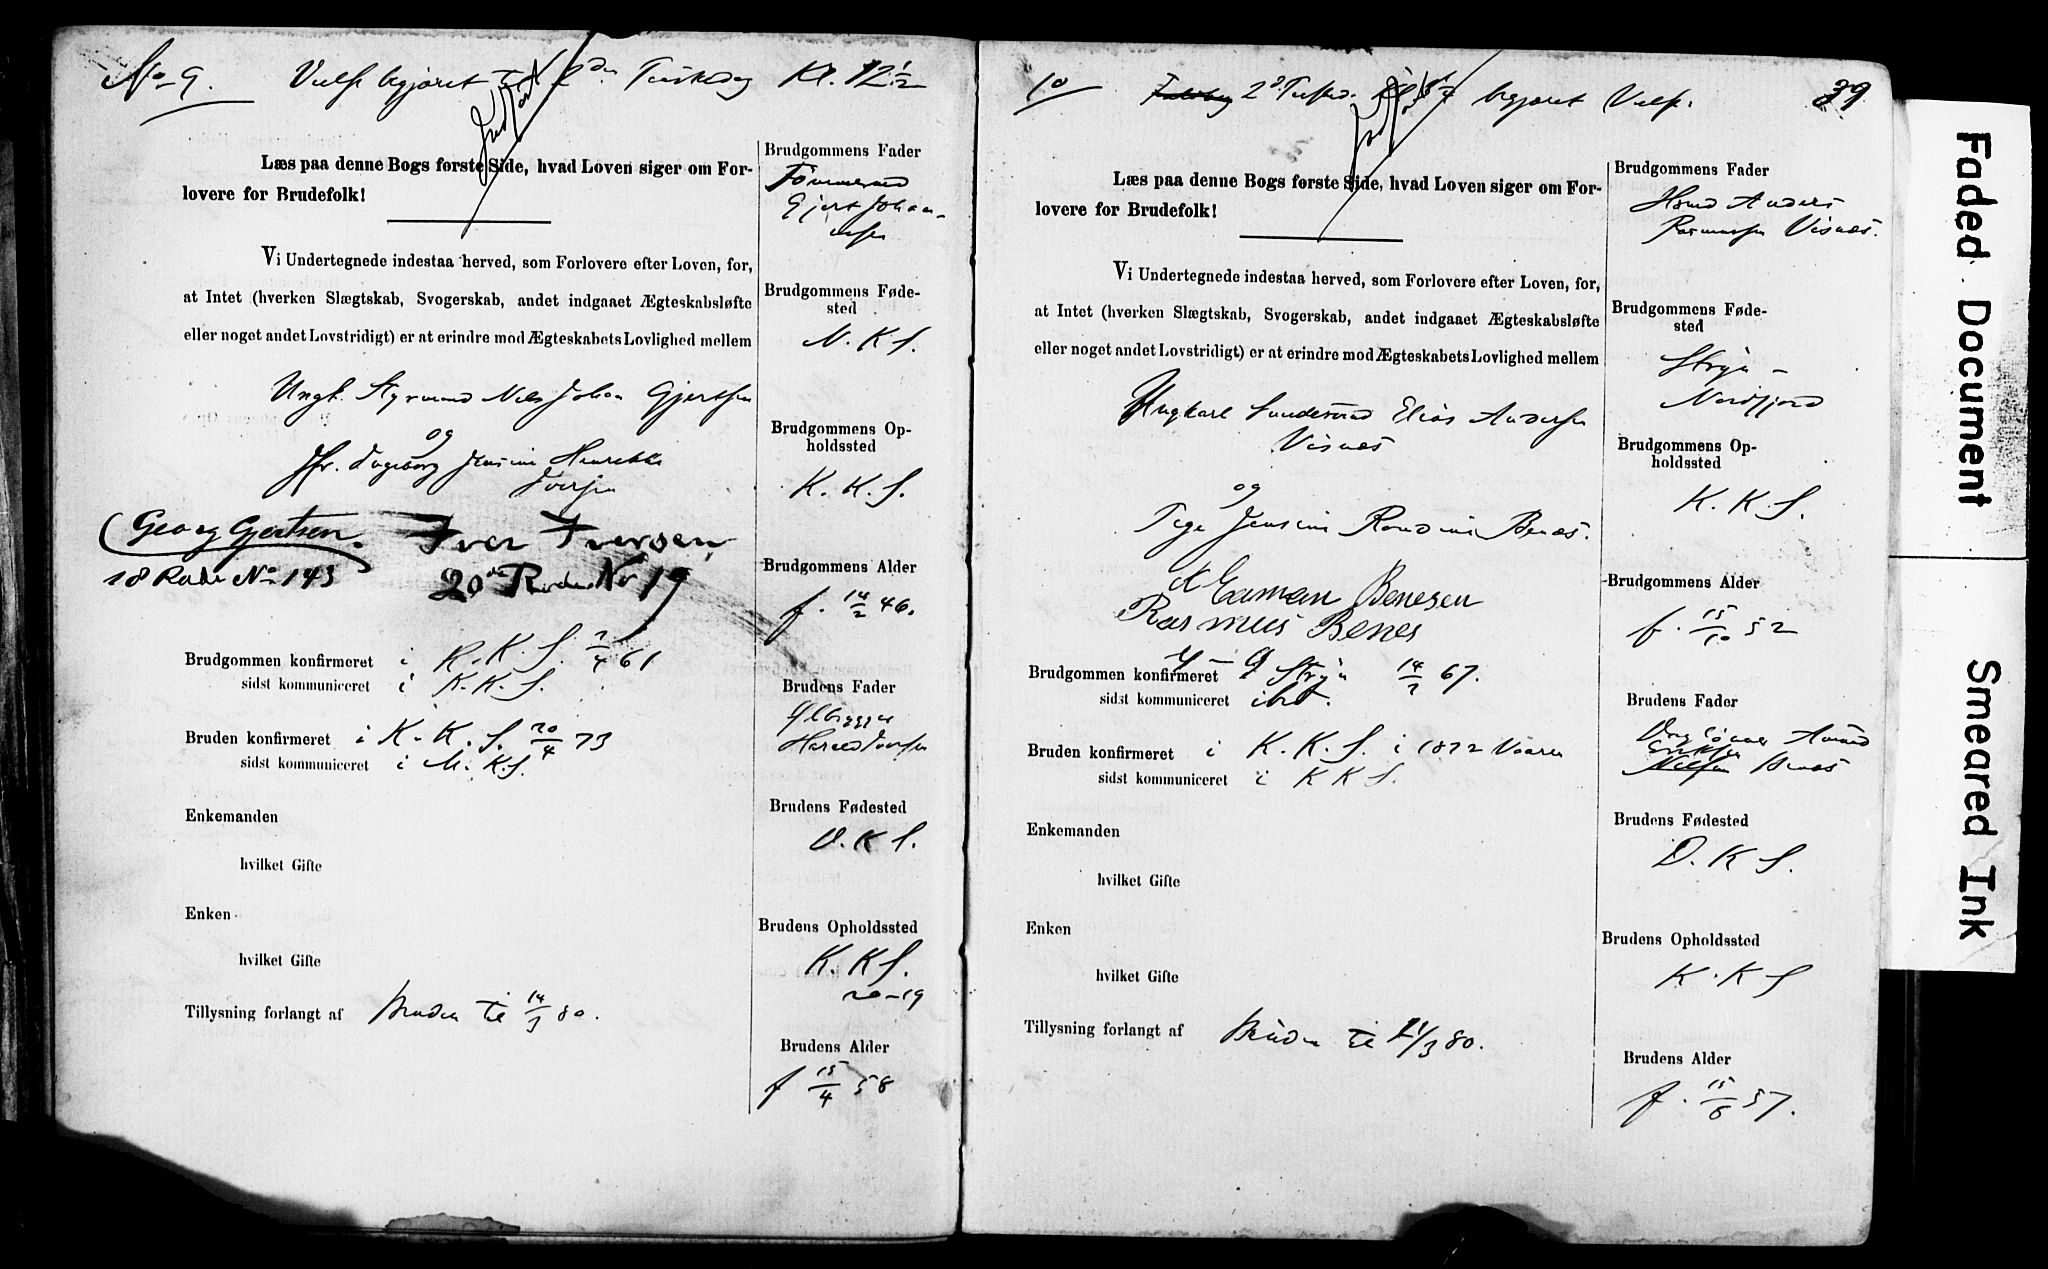 No 9. Vielse begjæret til 2den Paaskedag Kl. 12 1/2
Indført
Læs paa denne Bogs første Side, hvad Loven siger om For-
lovere for Brudefolk!
Vi Undertegnede indestaa herved, som Forlovere efter Loven, for,
at Intet (hverken Slægtskab, Svogerskab, andet indgaaet Ægteskabsløfte
eller noget andet Lovstridigt) er at erindre mod Ægteskabets Lovlighed mellem
Ungk. Styrmand Nils Johan Gjertsen
og
Jfr. Ingeborg Jensine Henrikke
Iversen
Georg Gjertsen. Iver Iversen
18 Rode No 143 20de Rode No 19
Brudgommen konfirmeret i K. S. 7/4 61
sidst kommuniceret i K. K. S.
Bruden konfirmeret i K. K. S. 20/4 73
sidst kommuniceret i M. K. S.
Enkemanden
hvilket Gifte
Enken
hvilket Gifte
Tillysning forlangt af Bruden til 14/3 80.
Brudgommens Fader
Tømmermand
Gjert Johan-
nesen
Brudgommens Føde-
sted
N. K. S.
Brudgommens Op-
holdssted
K. K. S.
Brudgommens Alder
f. 14/2 46.
Brudens Fader
Ølbrygger
Harald Iversen
Brudens Fødested
D. K. S.
Brudens Opholdssted
K. K. S.
20-19
Brudens Alder
f 15/4 58
10 2d begjæret Vielse.
39
Indført
Læs paa denne Bogs første Side, hvad Loven siger om For-
lovere for Brudefolk!
Vi Undertegnede indestaa herved, som Forlovere efter Loven, for,
at Intet (hverken Slægtskab, Svogerskab, andet indgaaet Ægteskabsløfte
eller noget andet Lovstridigt) er at erindre mod Ægteskabets Lovlighed mellem
Ungkarl Elias Andersen
Visnæs
og
Pige Jensine Benæs.
Benesen
Rasmus Benes
Brudgommen konfirmeret Stryn 14/7 67.
sidst kommuniceret ibid.
Bruden konfirmeret i K. K. S. i 1872 Vaaren
sidst kommuniceret i K K S.
Enkemanden
hvilket Gifte
Enken
hvilket Gifte
Tillysning forlangt af Bruden til 21/3 80.
Brudgommens Fader
Hsmd Anders
Rasmussen Visnæs.
Brudgommens Føde-
sted
Stryn -
Nordfjord
Brudgommens Op-
holdssted
K. K. S.
Brudgommens Alder
f. 15/10 52
Brudens Fader
Amund
Eriksen
Benæs
Brudens Fødested
D. K S.
Brudens Opholdssted
K. K S
Brudens Alder
f. 15/6 57.
Faded Document
Smeared Ink